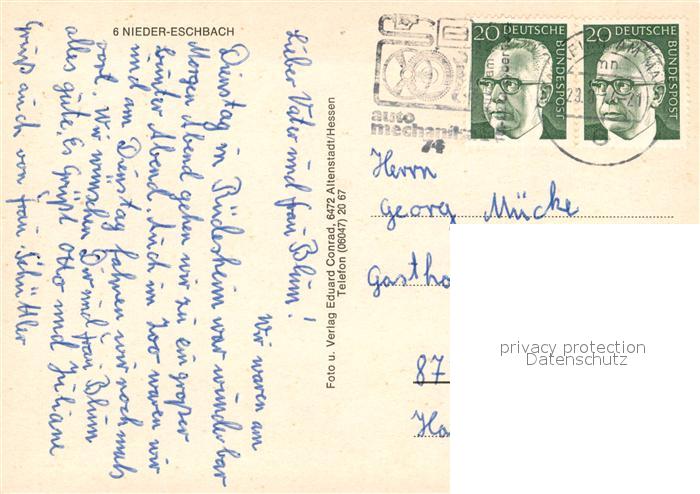 6 NIEDER-ESCHBACH
Lieber Vater und Frau Blum!
Wir waren am
Dienstag in Rüdesheim war wunderbar
Morgen Abend gehen wir zu ein großer
bunter Abend. Auch im Zoo waren wir
und am Dienstag fahren wir nochmals
fort. Wir wünschen Dir und Frau Blum
alles gute. Es Grüßt Otto und Juliane
Gruß auch von Frau Schüttler
Foto u. Verlag Eduard Conrad, 6472 Altenstadt/Hessen
Telefon (06047) 20 67
auto
mechanik
74
20 DEUTSCHE
BUNDESPOST
20 DEUTSCHE
BUNDESPOST
Herrn
Georg Mücke
Gastho
87
Ha
privacy protection
Datenschutz